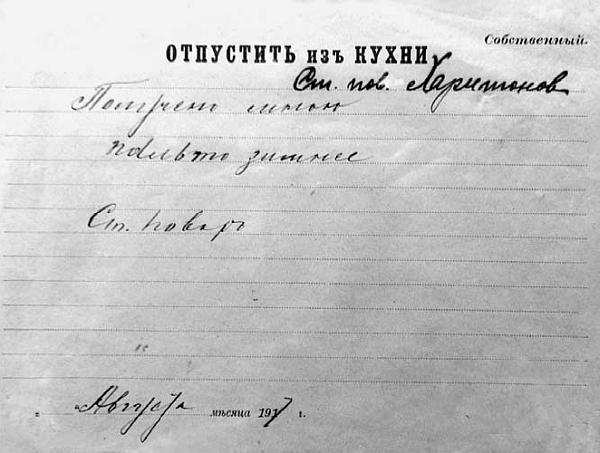 Собственный.
ОТПУСТИТЬ изъ КУХНИ
Ст. пов. Харитонов
Получено мною
пальто зимнее
Ст. Поваръ
„ Августа мѣсяца 1917 г.